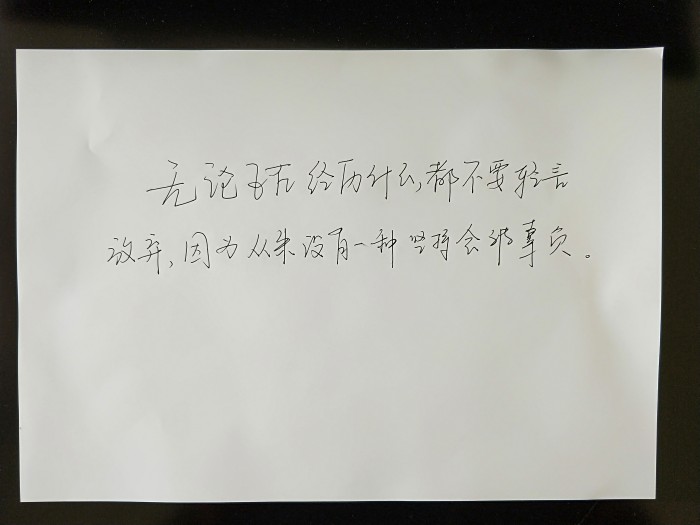 无论正在经历什么,都不要轻言
放弃,因为从来没有一种坚持会被辜负。